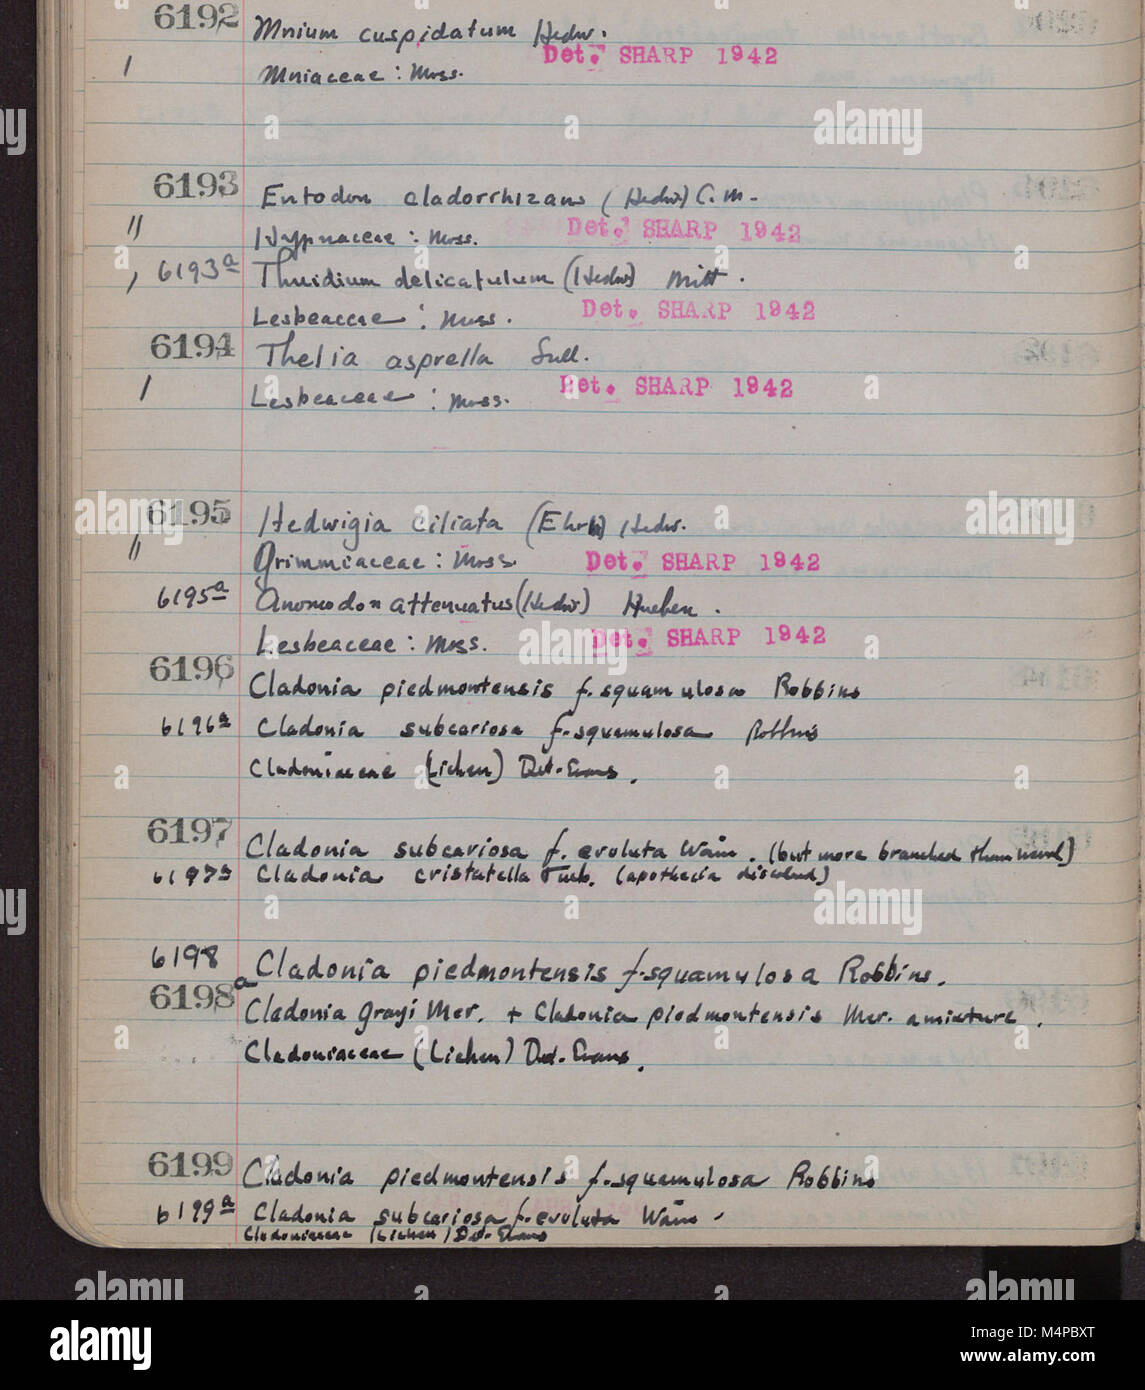 6192 Mnium cuspidatum Hedw.
Det. SHARP 1942
1 Mniaceae : Moss.
6193 Entodon cladorrhizans (Hedw) C.M.
" Hypnaceae : Moss. Det. SHARP 1942
, 6193a Thuidium delicatulum (Hedw) Mitt.
Lesbeaceae : Moss. Det. SHARP 1942
6194 Thelia asprella Sull.
1 Lesbeaceae : Moss. Det. SHARP 1942
6195 Hedwigia ciliata (Ehrh) Hedw.
" Grimmiaceae : Moss. Det. SHARP 1942
6195a Anomodon attenuatus (Hedw) Hueben.
Lesbeaceae : Moss. Det. SHARP 1942
6196 Cladonia piedmontensis f. squamulosa Robbins
6196a Cladonia subcariosa f. squamulosa Robbins
Cladoniaceae (Lichen) Det. Evans.
6197 Cladonia subcariosa f. evoluta Wain. (but more branched than usual)
6197a Cladonia cristatella Tuck. (apothecia discolored)
6198 Cladonia piedmontensis f. squamulosa Robbins.
6198a Cladonia Grayi Mer. + Cladonia piedmontensis Mer. a mixture.
Cladoniaceae (Lichen) Det. Evans.
6199 Cladonia piedmontensis f. squamulosa Robbins
6199a Cladonia subcariosa f. evoluta Wain.
Cladoniaceae (Lichen) Det. Evans
alamy
Image ID: M4PBXT
www.alamy.com